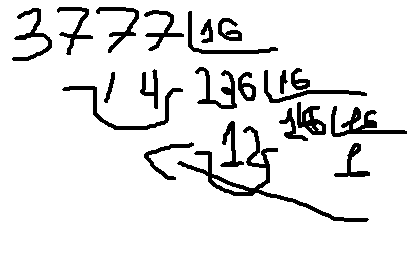 3777 16
14 236 16
12 16
1